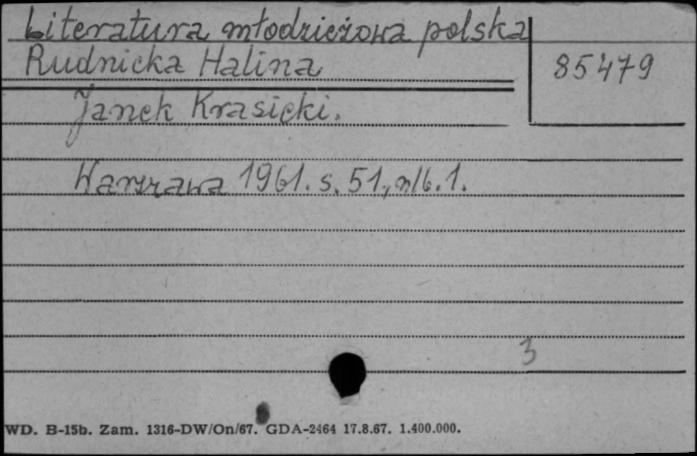 Literatura młodzieżowa polska
Rudnicka Halina
85479
Janek Krasicki.
Warszawa 1961. s. 51, nlb. 1.
3
WD. B-15b. Zam. 1316-DW/On/67. GDA-2464 17.8.67. 1.400.000.